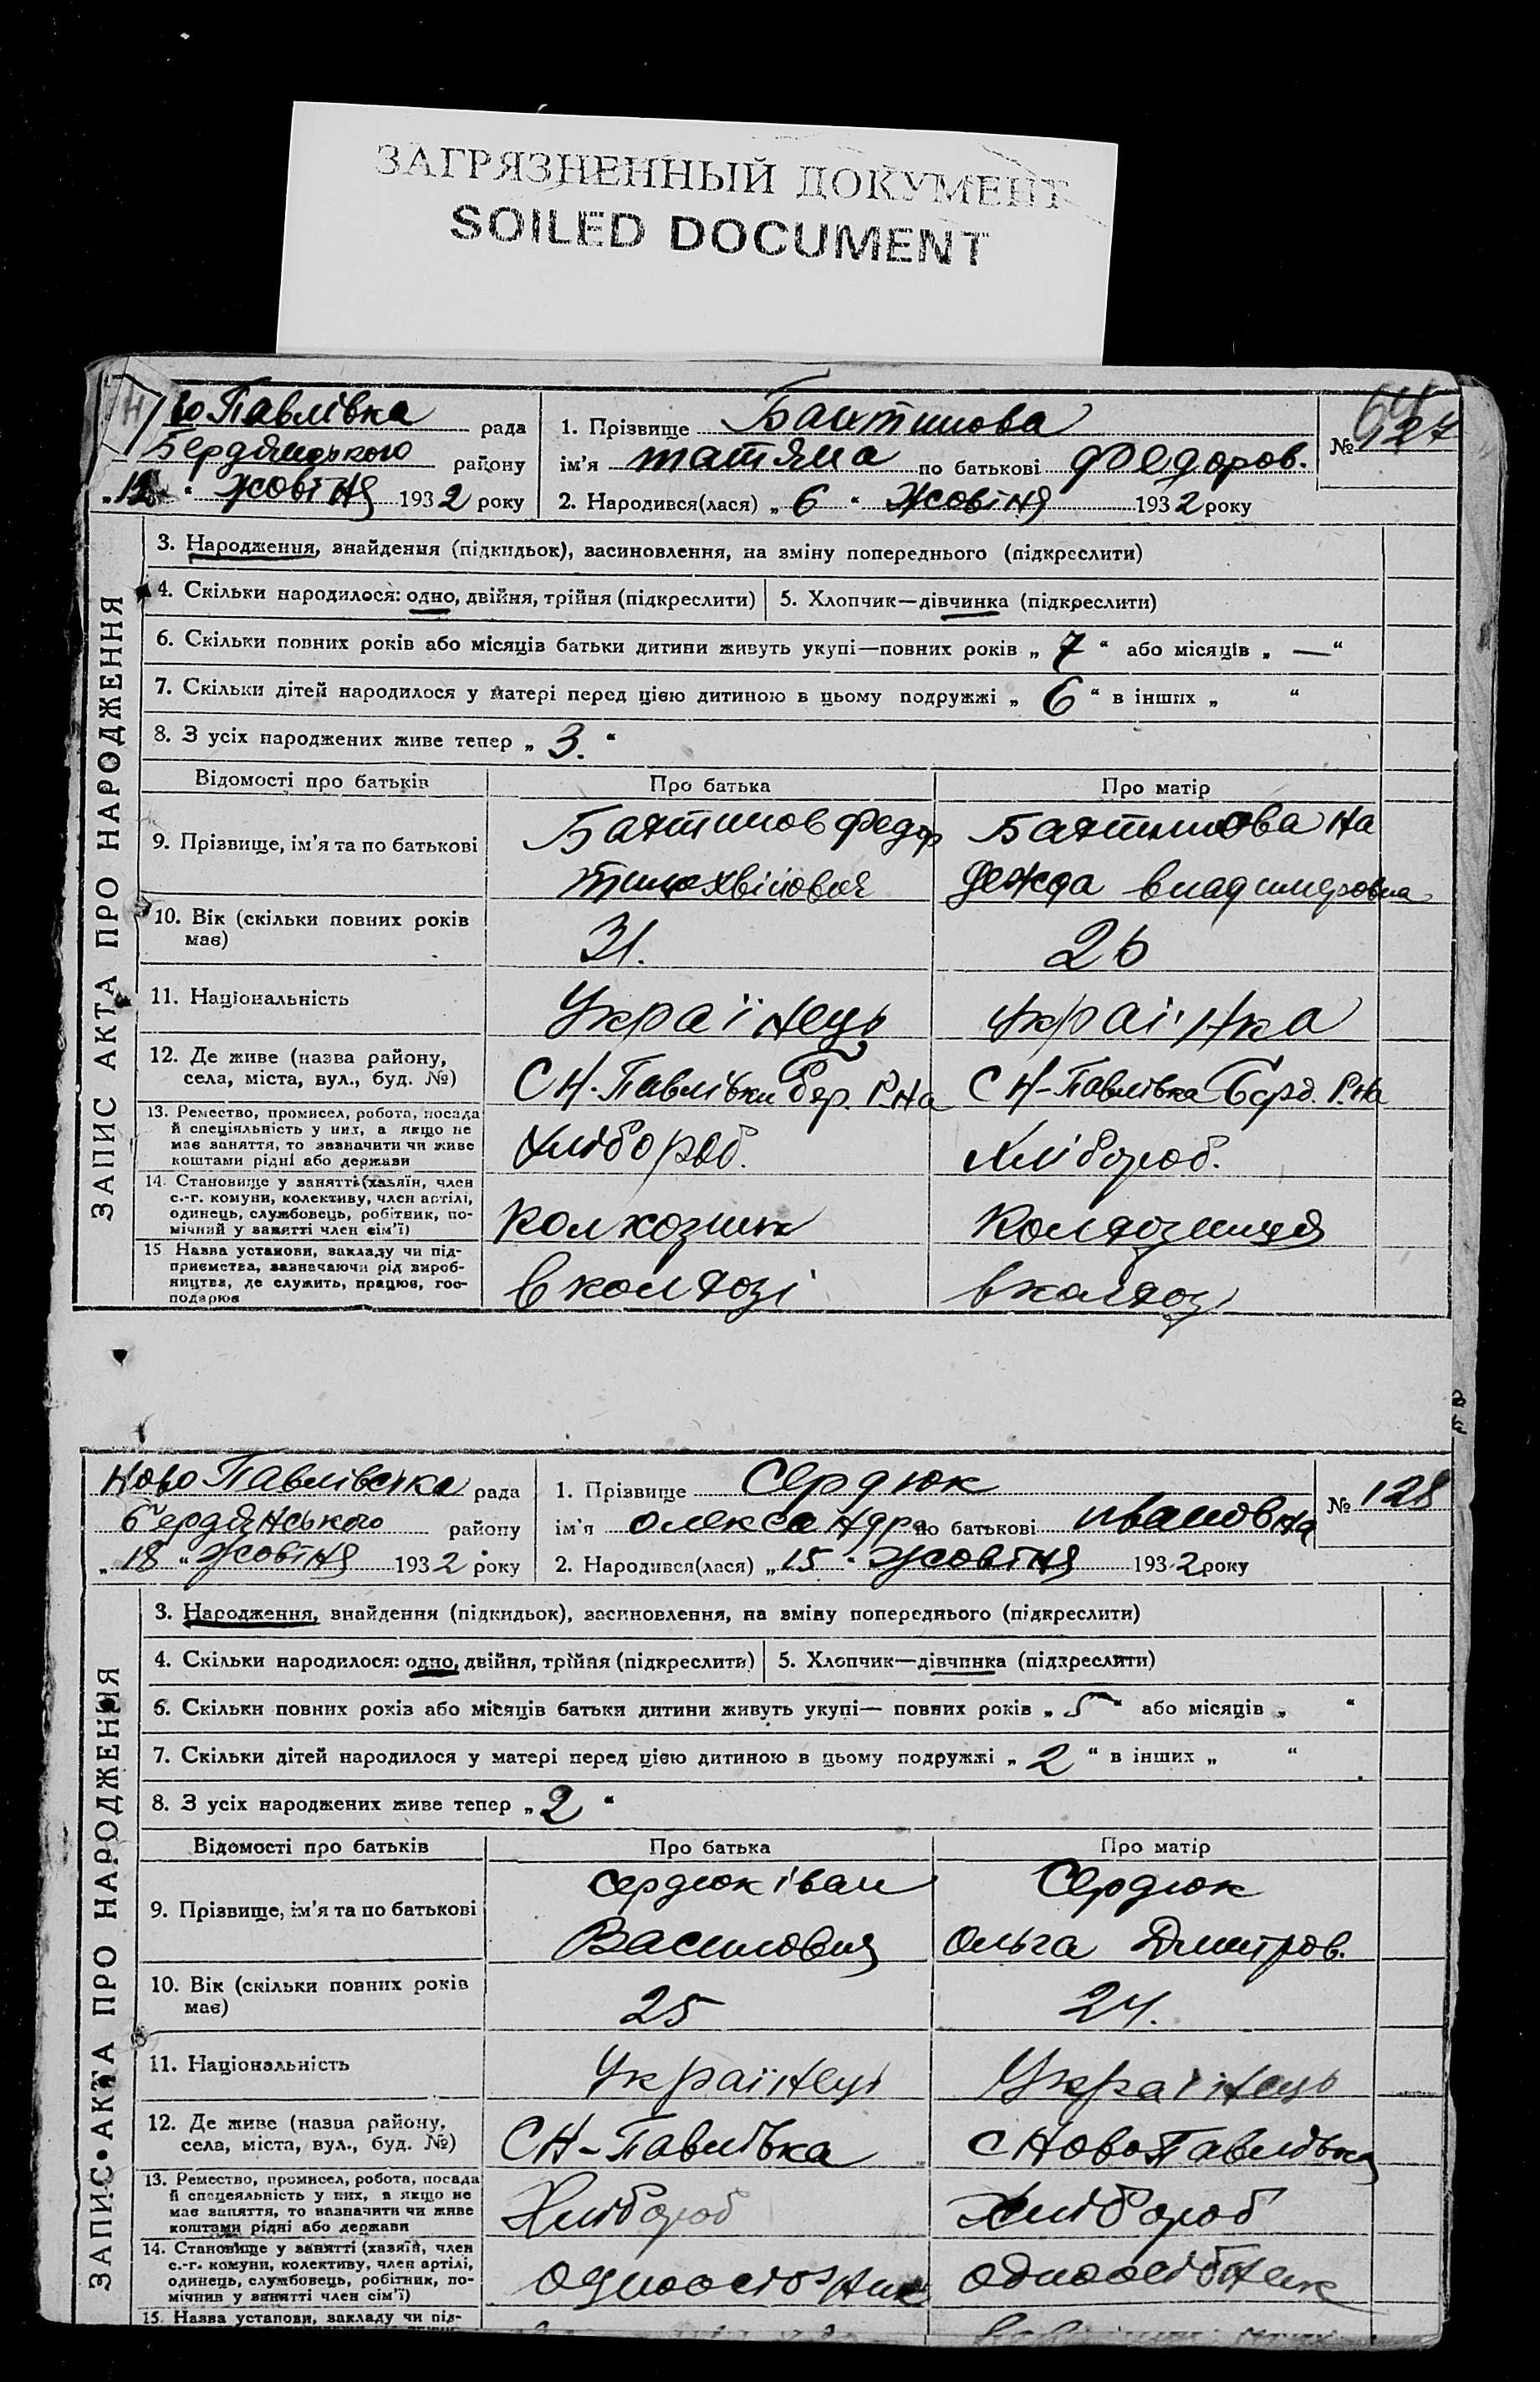 ЗАГРЯЗНЕННЫЙ ДОКУМЕНТ
SOILED DOCUMENT
Павлівка рада
Бердянського району
жовтня 1932 року
1. Прізвище
ім'я татяна по батькові Федоров.
2. Народився(лася) „6“ жовтня 1932 року
№ 127
ЗАПИС АКТА ПРО НАРОДЖЕННЯ
3. Народження, знайдення (підкидьок), засиновлення, на зміну попереднього (підкреслити)
4. Скільки народилося: одно, двійня, трійня (підкреслити)
5. Хлопчик—дівчинка (підкреслити)
6. Скільки повних років або місяців батьки дитини живуть укупі—повних років „7“ або місяців „—“
7. Скільки дітей народилося у матері перед цією дитиною в цьому подружжі „6“ в інших „ “
8. З усіх народжених живе тепер „3.“
Відомості про батьків Про батька Про матір
9. Прізвище, ім'я та по батькові
Федор
На
дежда владимировна
10. Вік (скільки повних років має)
31.
26
11. Національність
Українець
українка
12. Де живе (назва району, села, міста, вул., буд. №)
С Н-Павлівка Бер. Р.На
С Н-Павлівка Берд. Р.На
13. Ремество, промисел, робота, посада
й спеціяльність у них, а якщо не
має заняття, то зазначити чи живе
коштами рідні або держави
Хлібороб.
Хлібороб.
14. Становище у занятті (хазяїн, член
с.-г. комуни, колективу, член артілі,
одинець, службовець, робітник, по-
мічний у занятті член сім'ї)
Колхозник
Колхозниця
15 Назва установи, закладу чи під-
приємства, зазначаючи рід вироб-
ництва, де служить, працює, гос-
подарює
в колхозі
в колхозі
Ново Павлівска рада
Бердянського району
„18“ жовтня 1932 року
1. Прізвище Сердюк
ім'я Олександра по батькові Ивановна
2. Народився(лася) „15“ жовтня 1932 року
№ 128
ЗАПИС АКТА ПРО НАРОДЖЕННЯ
3. Народження, знайдення (підкидьок), засиновлення, на зміну попереднього (підкреслити)
4. Скільки народилося: одно, двійня, трійня (підкреслити)
5. Хлопчик—дівчинка (підкреслити)
6. Скільки повних років або місяців батьки дитини живуть укупі— повних років „5“ або місяців „ “
7. Скільки дітей народилося у матері перед цією дитиною в цьому подружжі „2“ в інших „ “
8. З усіх народжених живе тепер „2“
Відомості про батьків Про батька Про матір
9. Прізвище, ім'я та по батькові
Сердюк іван
Василович
Сердюк
Ольга Дмитров.
10. Вік (скільки повних років має)
25
24.
11. Національність
Українець
Українець
12. Де живе (назва району, села, міста, вул., буд. №)
С Н-Павлівка
С Ново Павлівка
13. Ремество, промисел, робота, посада
й спецеяльність у них, а якщо не
має заняття, то зазначити чи живе
коштами рідні або держави
Хлібороб
Хлібороб
14. Становище у занятті (хазяїн, член
с.-г. комуни, колективу, член артілі,
одинець, службовець, робітник, по-
мічния у занятті член сім'ї)
Одноосібник
Одноосібник
15. Назва установи, закладу чи під-